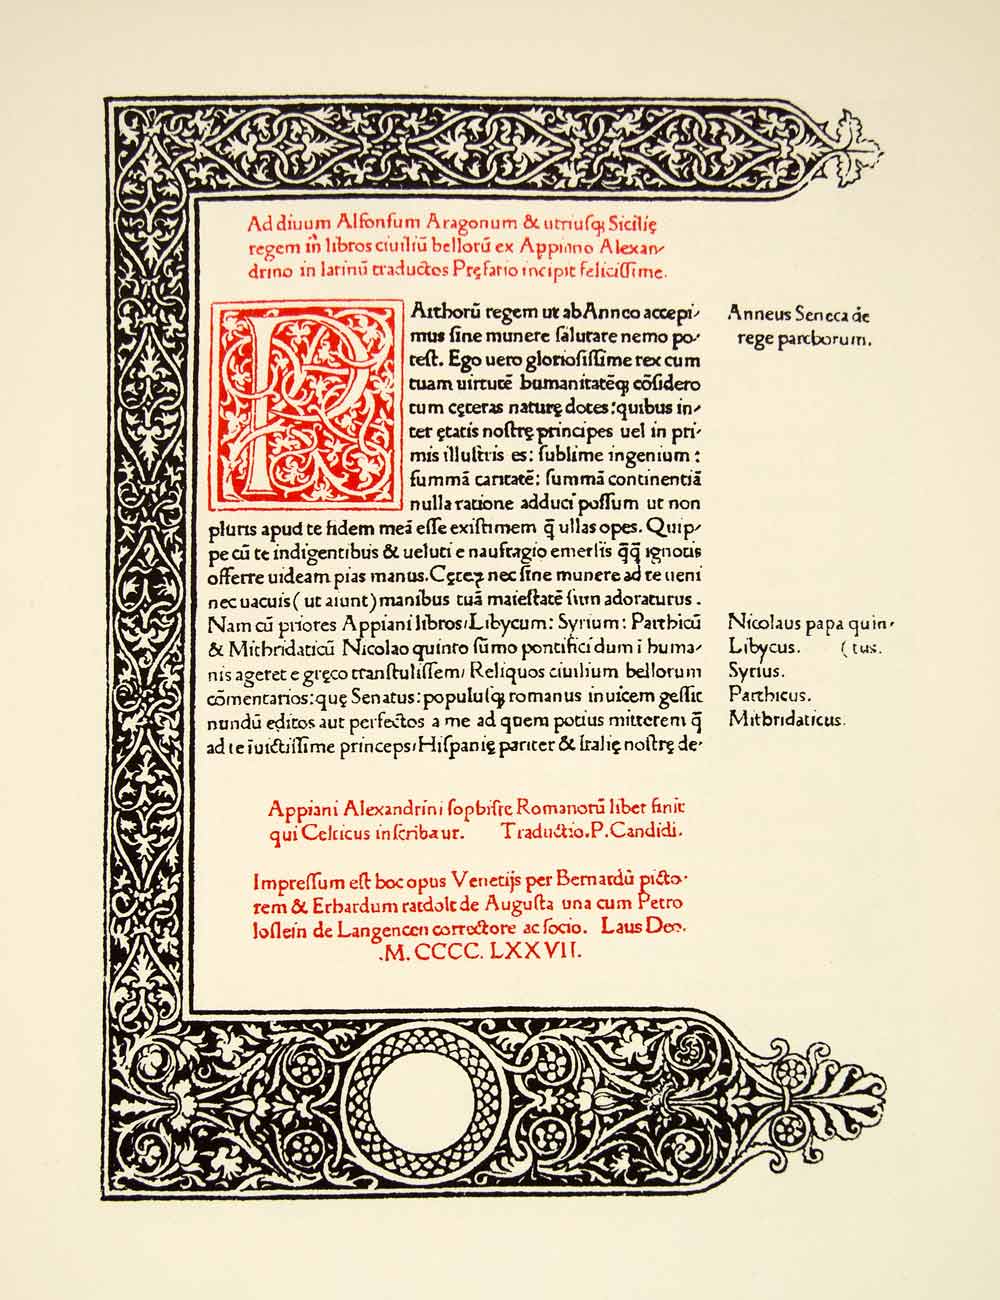 Ad diuum Alfonsum Aragonum & utriusq; Sicilię
regem in libros ciuiliū bellorū ex Appiano Alexan-
drino in latinū traductos Pręfatio incipit felicissime.
PArthorū regem ut ab Anneo accepi-
mus sine munere salutare nemo po-
test. Ego uero gloriosissime rex cum
tuam uirtutē humanitatēq; cōsidero
tum cęteras naturę dotes: quibus in-
ter ętatis nostrę principes uel in pri-
mis illustris es: sublime ingenium:
summā caritatē: summā continentiā
nulla ratione adduci possum ut non
pluris apud te fidem meā esse existimem q̄ ullas opes. Quip-
pe cū te indigentibus & ueluti e naufragio emersis q̄q̄ ignotis
offerre uideam pias manus. Cęteꝝ nec sine munere ad te ueni
nec uacuis (ut aiunt) manibus tuā maiestatē sum adoraturus.
Nam cū priores Appiani libros/Libycum: Syrium: Parthicū
& Mithridaticū Nicolao quinto sūmo pontifici dum i huma-
nis ageret e gręco transtulissem/ Reliquos ciuilium bellorum
cōmentarios: quę Senatus: populusq; romanus inuicem gessit
nundū editos aut perfectos a me ad quem potius mitterem q̄
ad te īuictissime princeps/Hispanię pariter & Italię nostrę de-
Anneus Seneca de
rege parthorum.
Nicolaus papa quin-
Libycus. (tus.
Syrius.
Parthicus.
Mithridaticus.
Appiani Alexandrini sophiste Romanorū liber finit
qui Celticus inscribatur. Traductio. P. Candidi.
Impressum est hoc opus Venetijs per Bernardū picto-
rem & Erhardum ratdolt de Augusta una cum Petro
loslein de Langencen correctore ac socio. Laus Deo.
.M. CCCC. LXXVII.